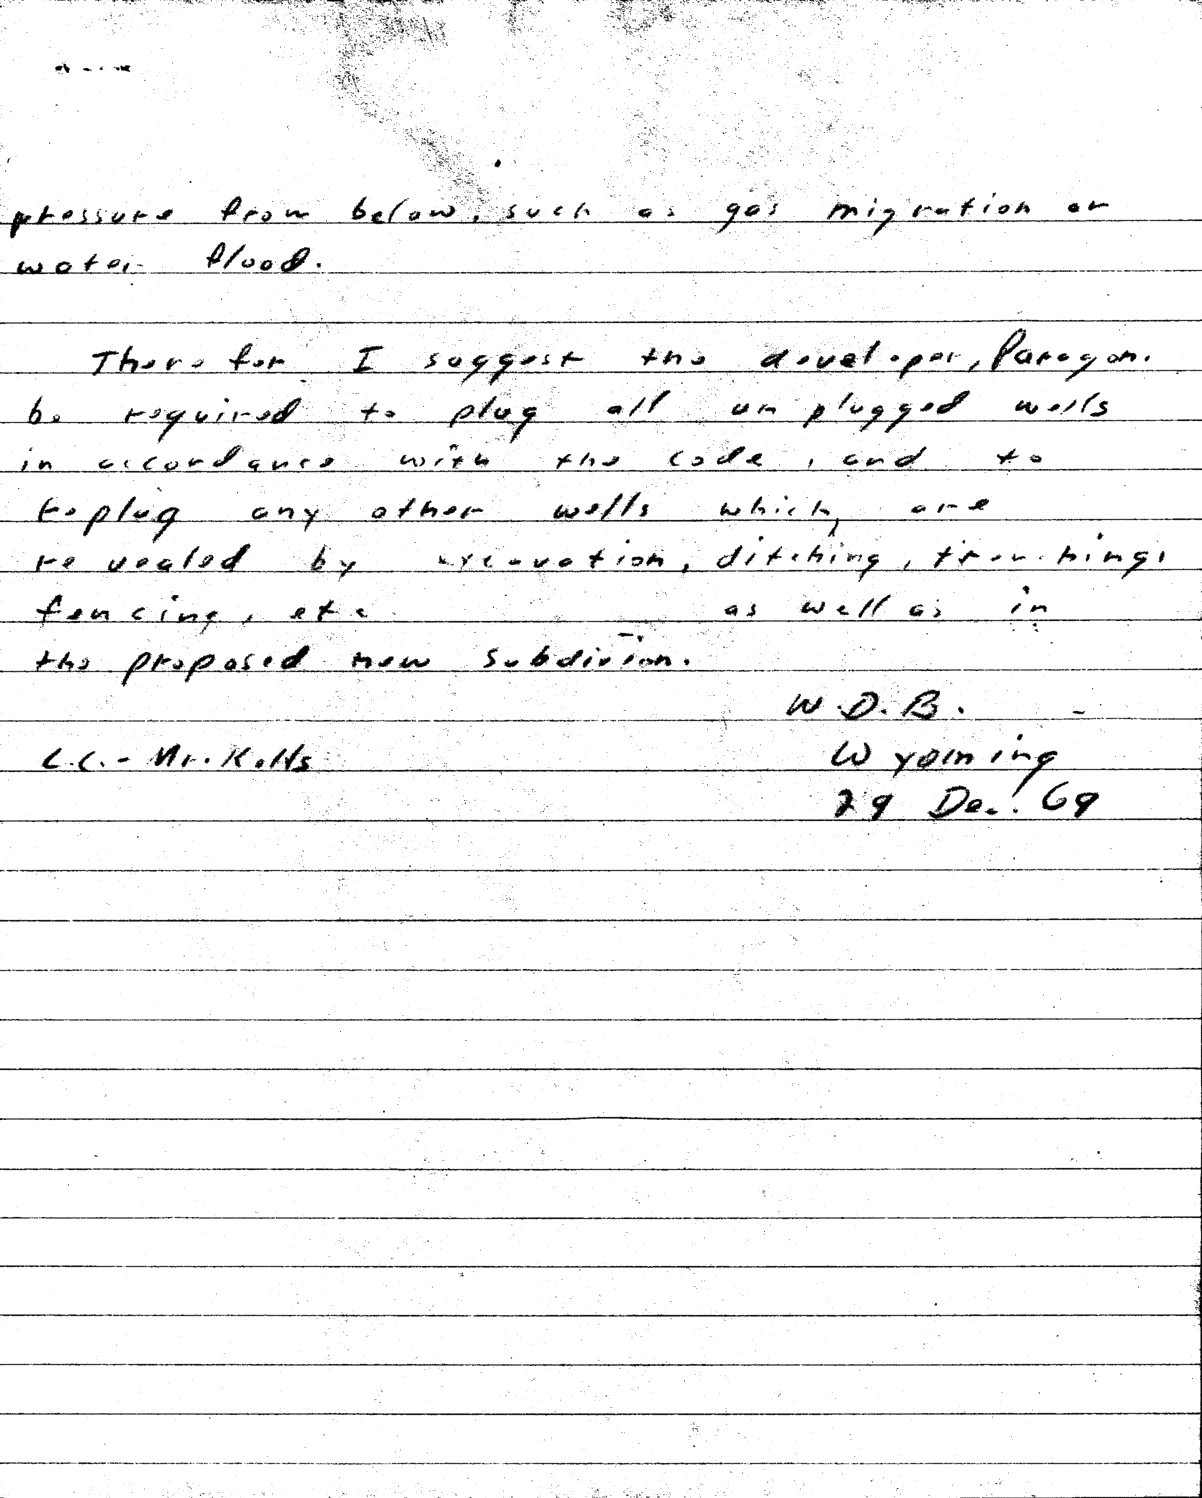 pressure from below, such as gas migration or
water flood.
Therefor I suggest the developer, Paragon.
be required to plug all unplugged wells
in accordance with the code, and to
replug any other wells which, are
revealed by excavation, ditching, trenching,
fencing, etc as well as in
the proposed new subdivion.
W.D.B.
c.c. - Mr. Kotts
Wyoming
29 Dec. 69